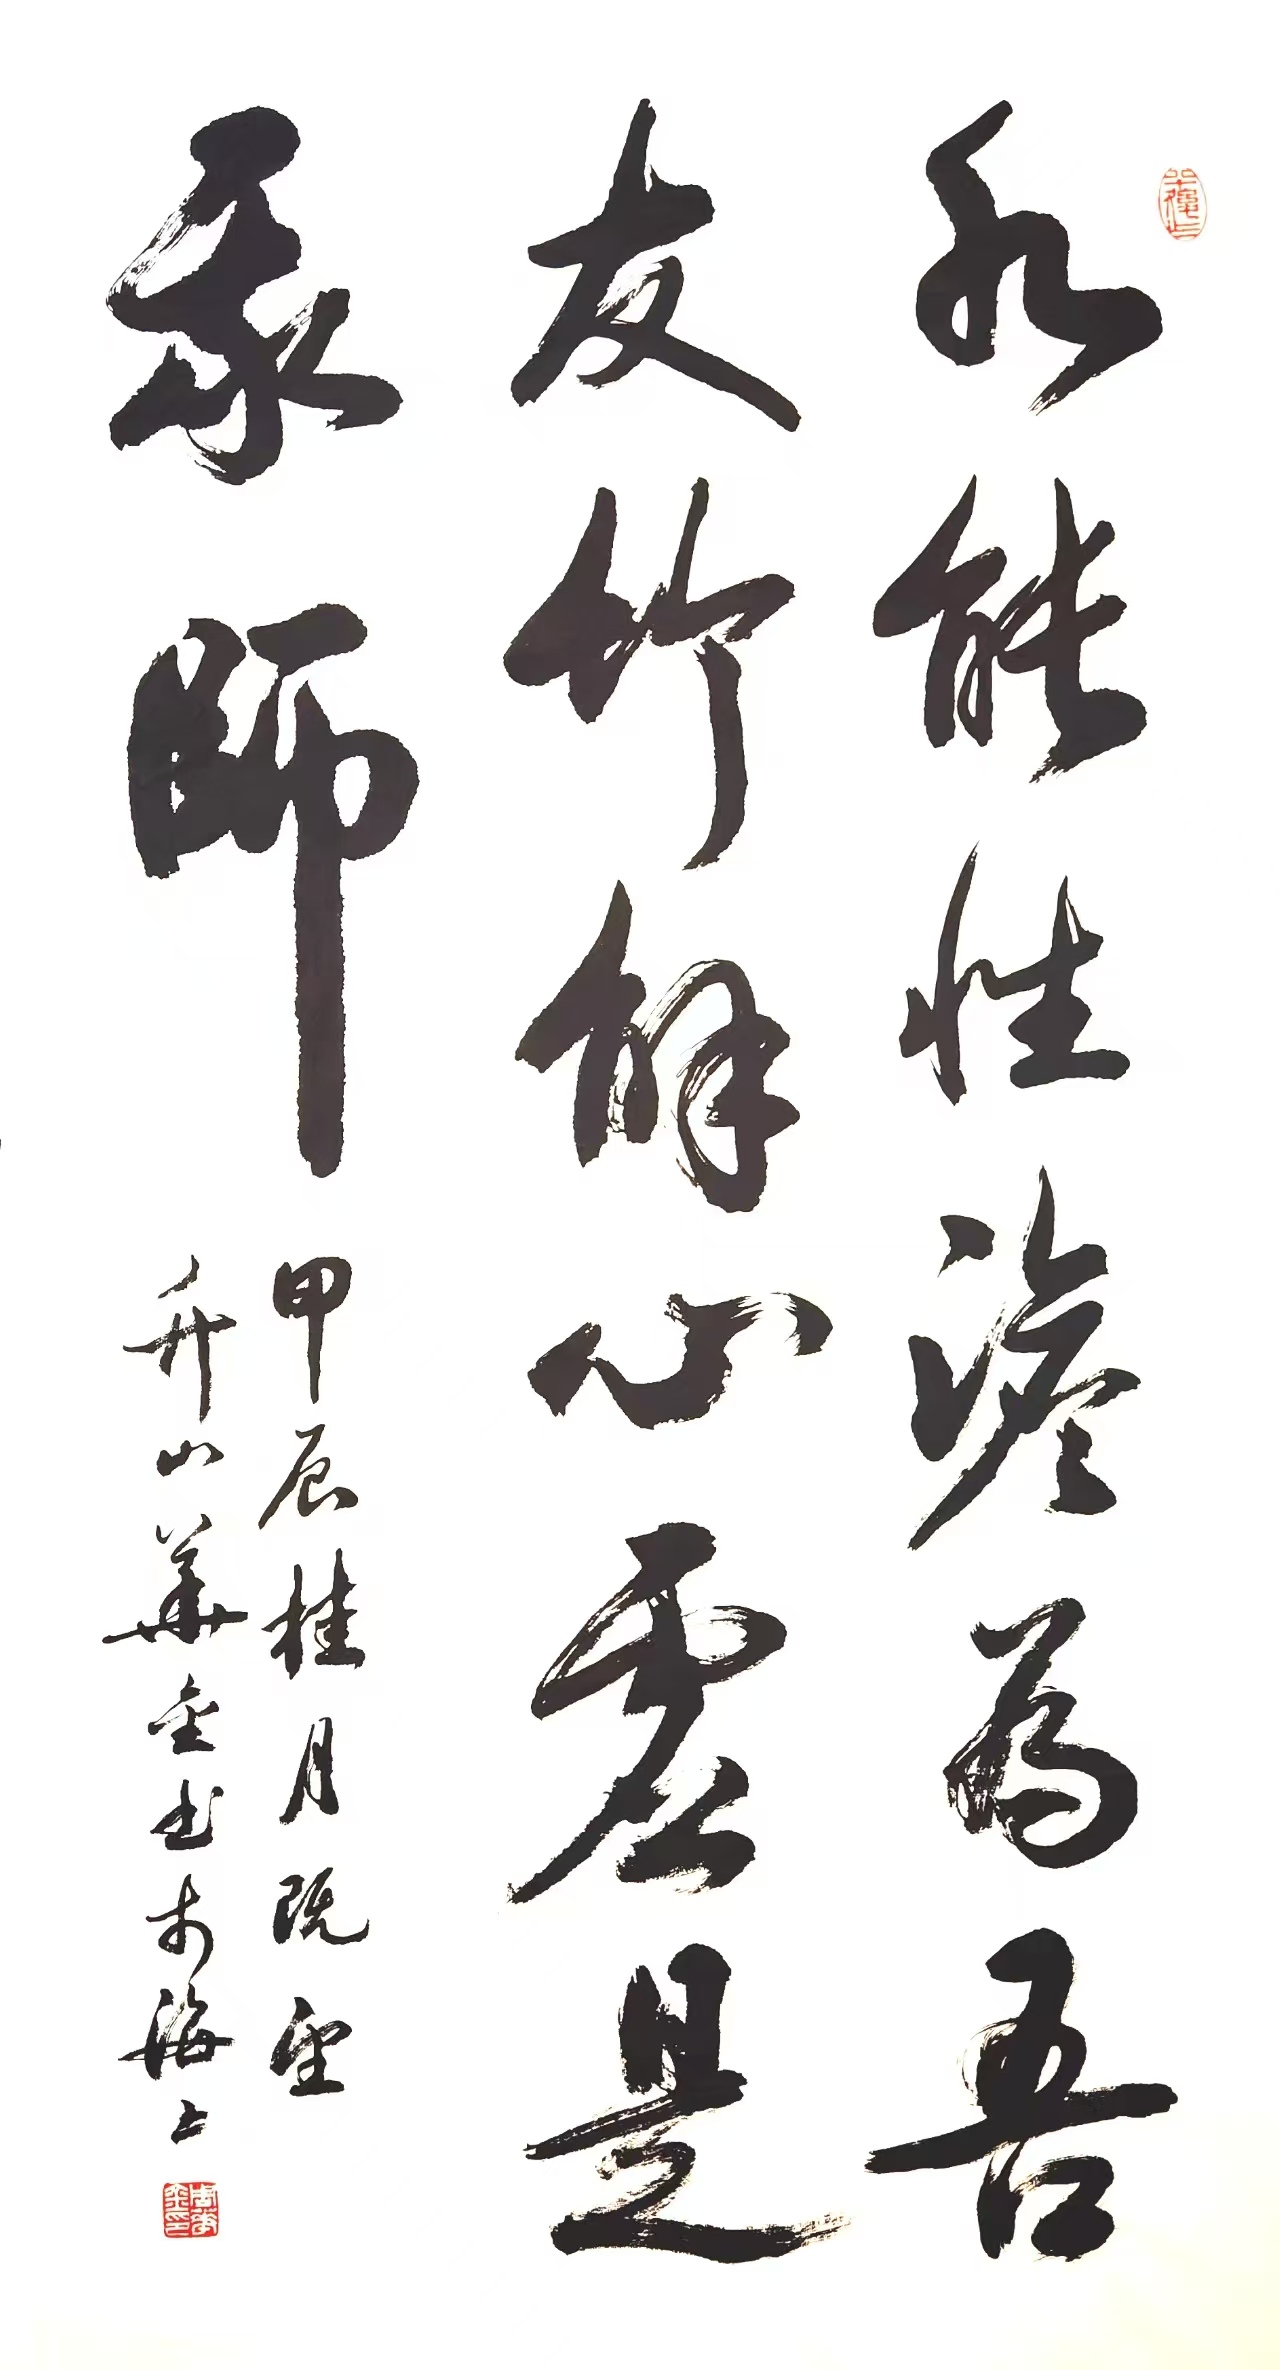 水能性澹為吾
友竹解心虛是
我師
甲辰桂月既望
升山華金书於海上